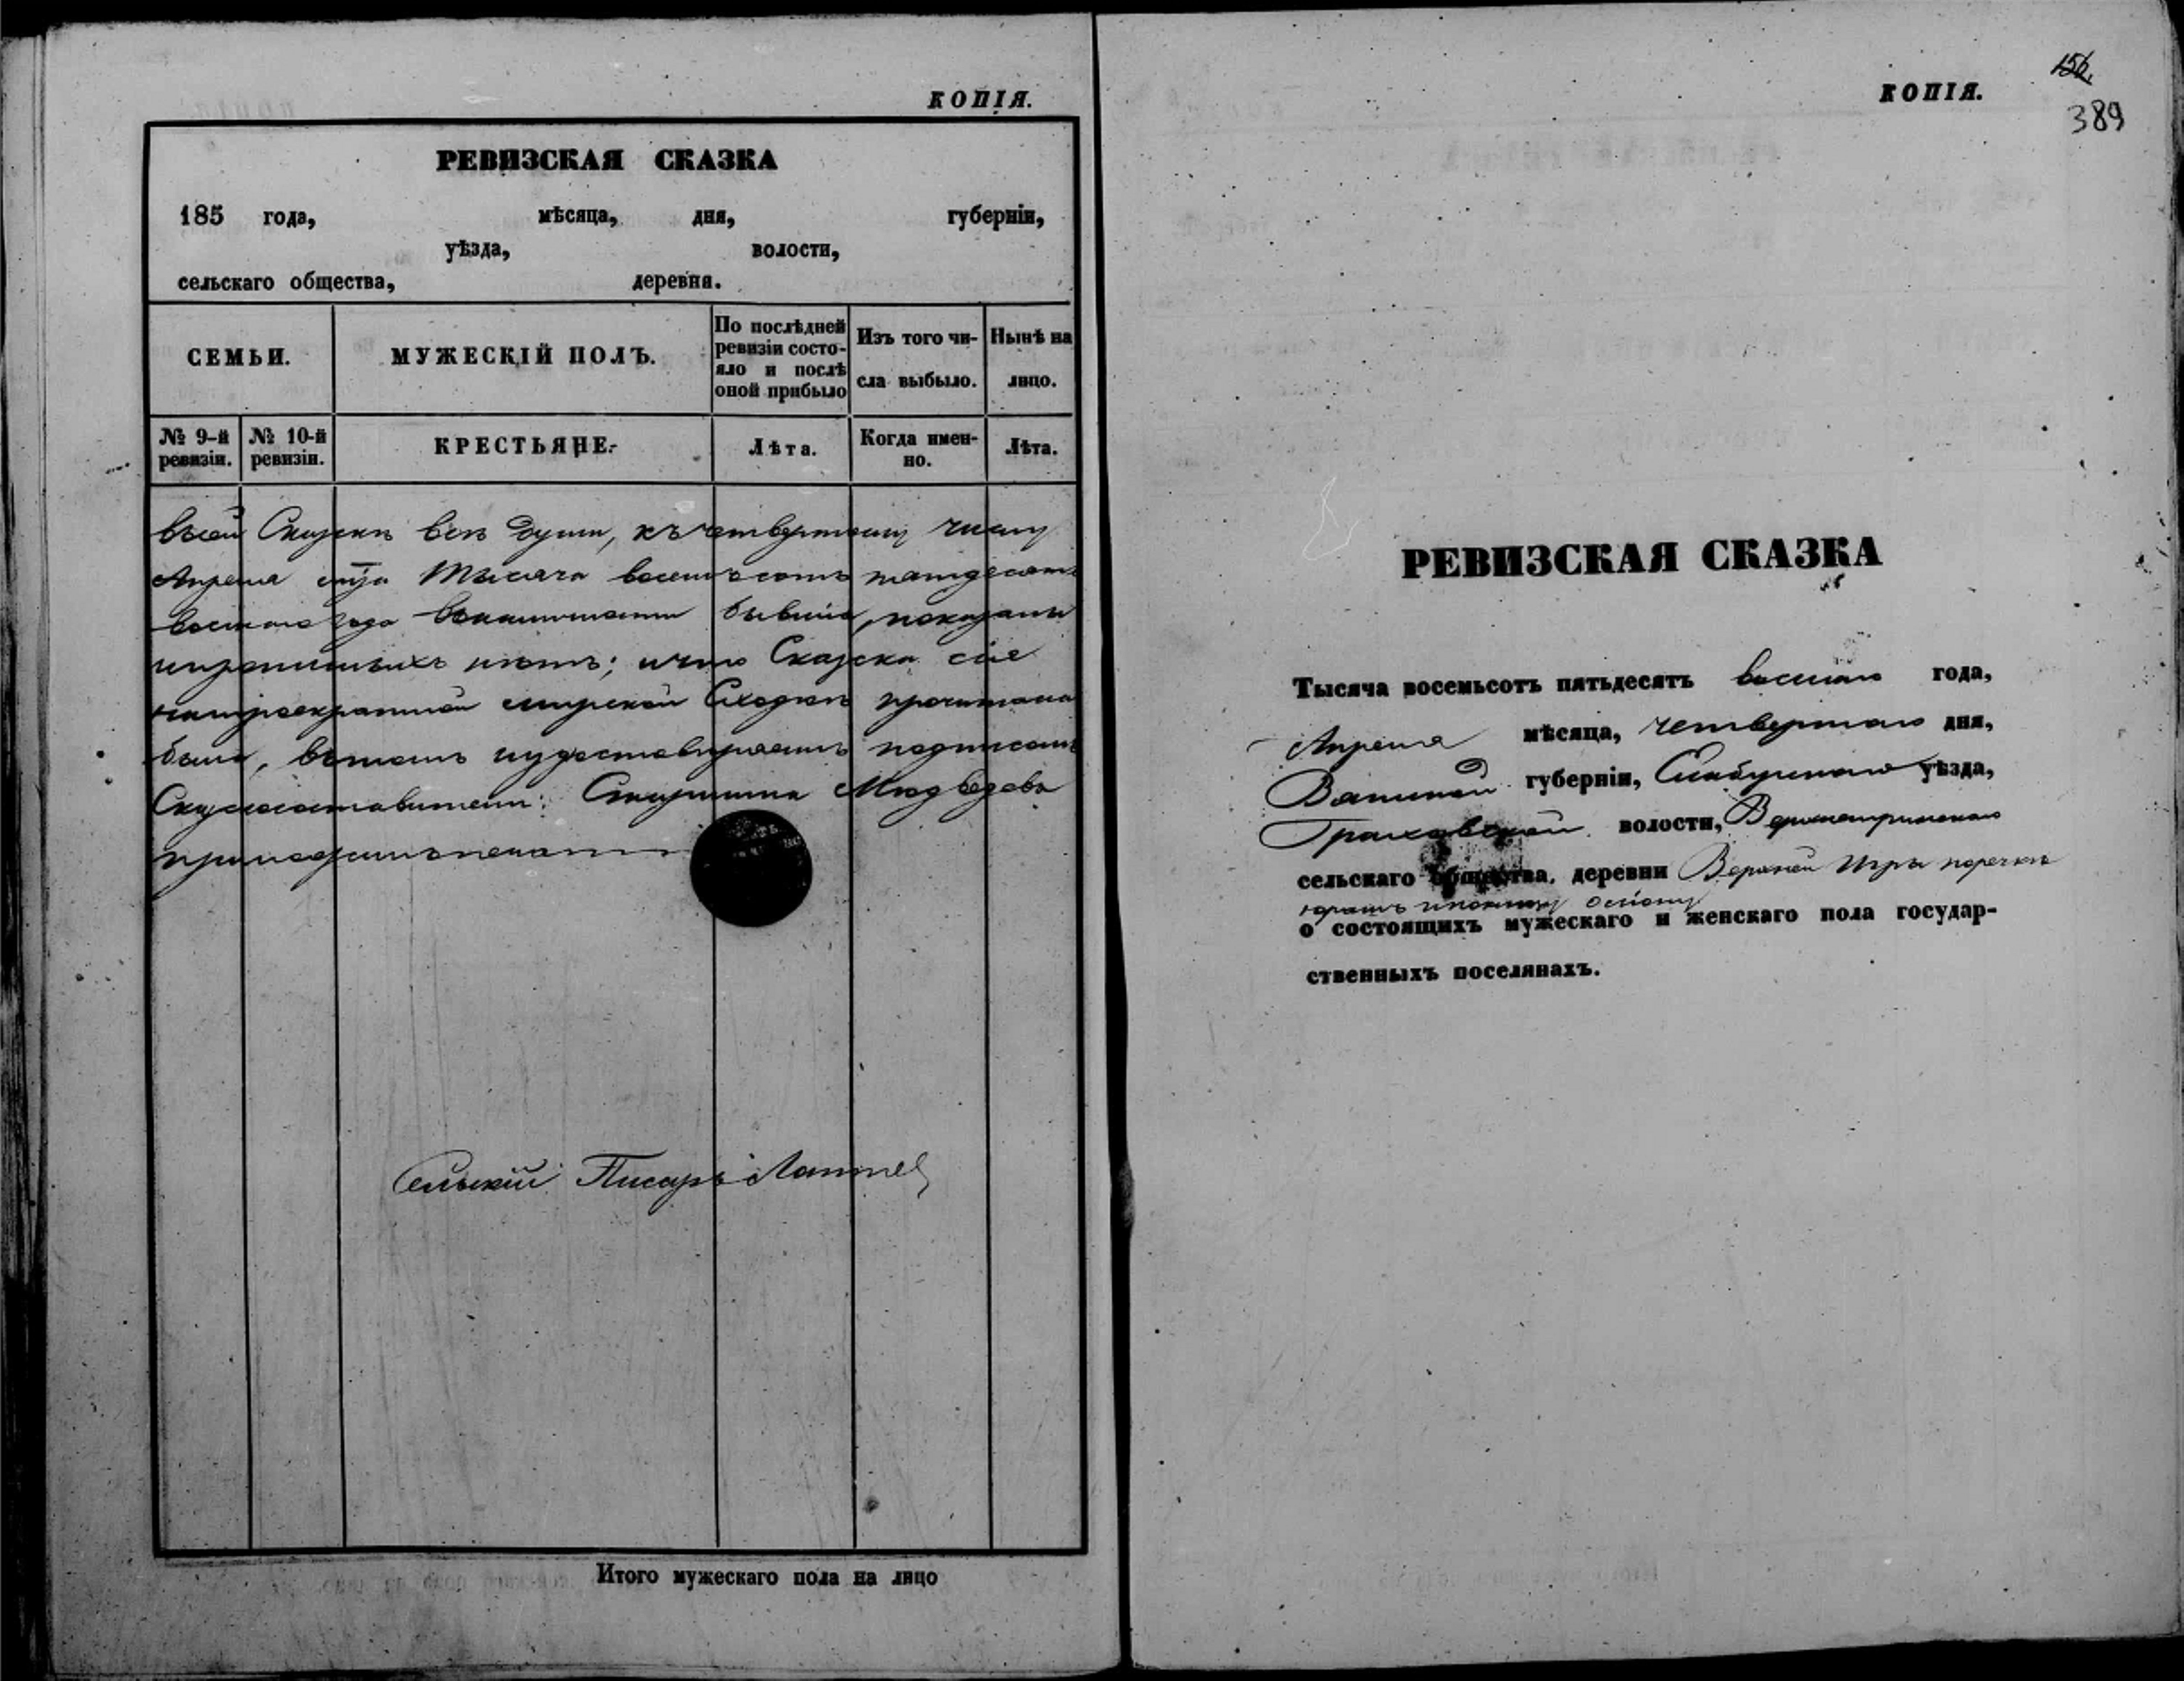 КОПІЯ.
РЕВИЗСКАЯ СКАЗКА
185 года, мѣсяца, дня, губерніи,
уѣзда, волости,
сельскаго общества, деревня.
СЕМЬИ.
МУЖЕСКІЙ ПОЛЪ.
По послѣдней
ревизіи состо-
яло и послѣ
оной прибыло
Изъ того чи-
сла выбыло.
Нынѣ на
лицо.
№ 9-й
ревизіи.
№ 10-й
ревизіи.
КРЕСТЬЯНЕ.
Лѣта.
Когда имен-
но.
Лѣта.
Всей Сказкѣ всѣ души, къ четвертому числу
Апреля Тысяча восемьсотъ пятдесятъ
восьмаго года бывшіе, показаны
нѣтъ; и что Сказка сіе
мирской Сходкѣ прочитана
была, въ томъ и удостовѣряемъ подписомъ
Сказкосоставители: Старшина Медведевъ
Сельскій Писарь Лаптев
Итого мужескаго пола на лицо
КОПІЯ.
156
389
РЕВИЗСКАЯ СКАЗКА
Тысяча восемьсотъ пятьдесятъ восьмаго года,
Апреля мѣсяца, четвертаго дня,
Вятской губерніи, Елабужскаго уѣзда,
Граховской волости, Верхнеигринскаго
сельскаго общества, деревни Верхней Игры по речкѣ
о состоящихъ мужескаго и женскаго пола государ-
ственныхъ поселянахъ.